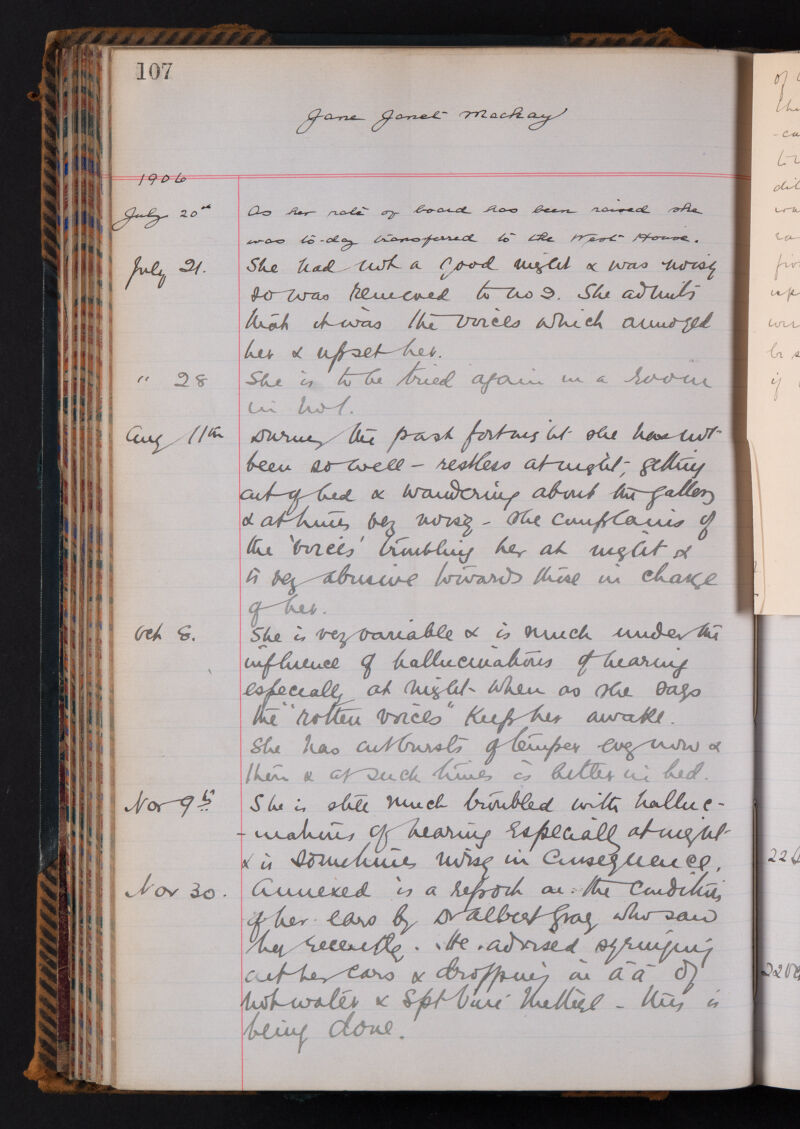 107
Jane Janet Mackay
1906
July 20th As her rate of board has been raised she
was to-day transferred to the West House.
July 21. She had not a good night & was noisy
so was removed to no 2. She admits
that it was the voices which annoyed
her & upset her.
" 28 She is to be tried again in a room
in no 1.
Aug 11th During the past fortnight she has not
been so well - restless at night, getting
out of bed & wandering about the gallery
& at times very noisy - She complains of
the 'voices' troubling her at night &
is very abusive towards those in charge
of her.
Oct 8. She is very variable & is much under the
influence of hallucinations of hearing
especially at night - when as she says
the "rotten voices" keep her awake.
She has outbursts of temper every now &
then & at such times is better in bed.
Nov 9th She is still much troubled with halluc-
-inations of hearing especially at night
& is sometimes noisy in consequence.
Nov 30. Annexed is a report on the condition
of her ears by Dr Albert Gray who saw
her recently. He advised syringing
out her ears & dropping in āā of
hot water & Spt Vini Methyl - this is
being done.
of
the
-ca
dil
wa
if
226